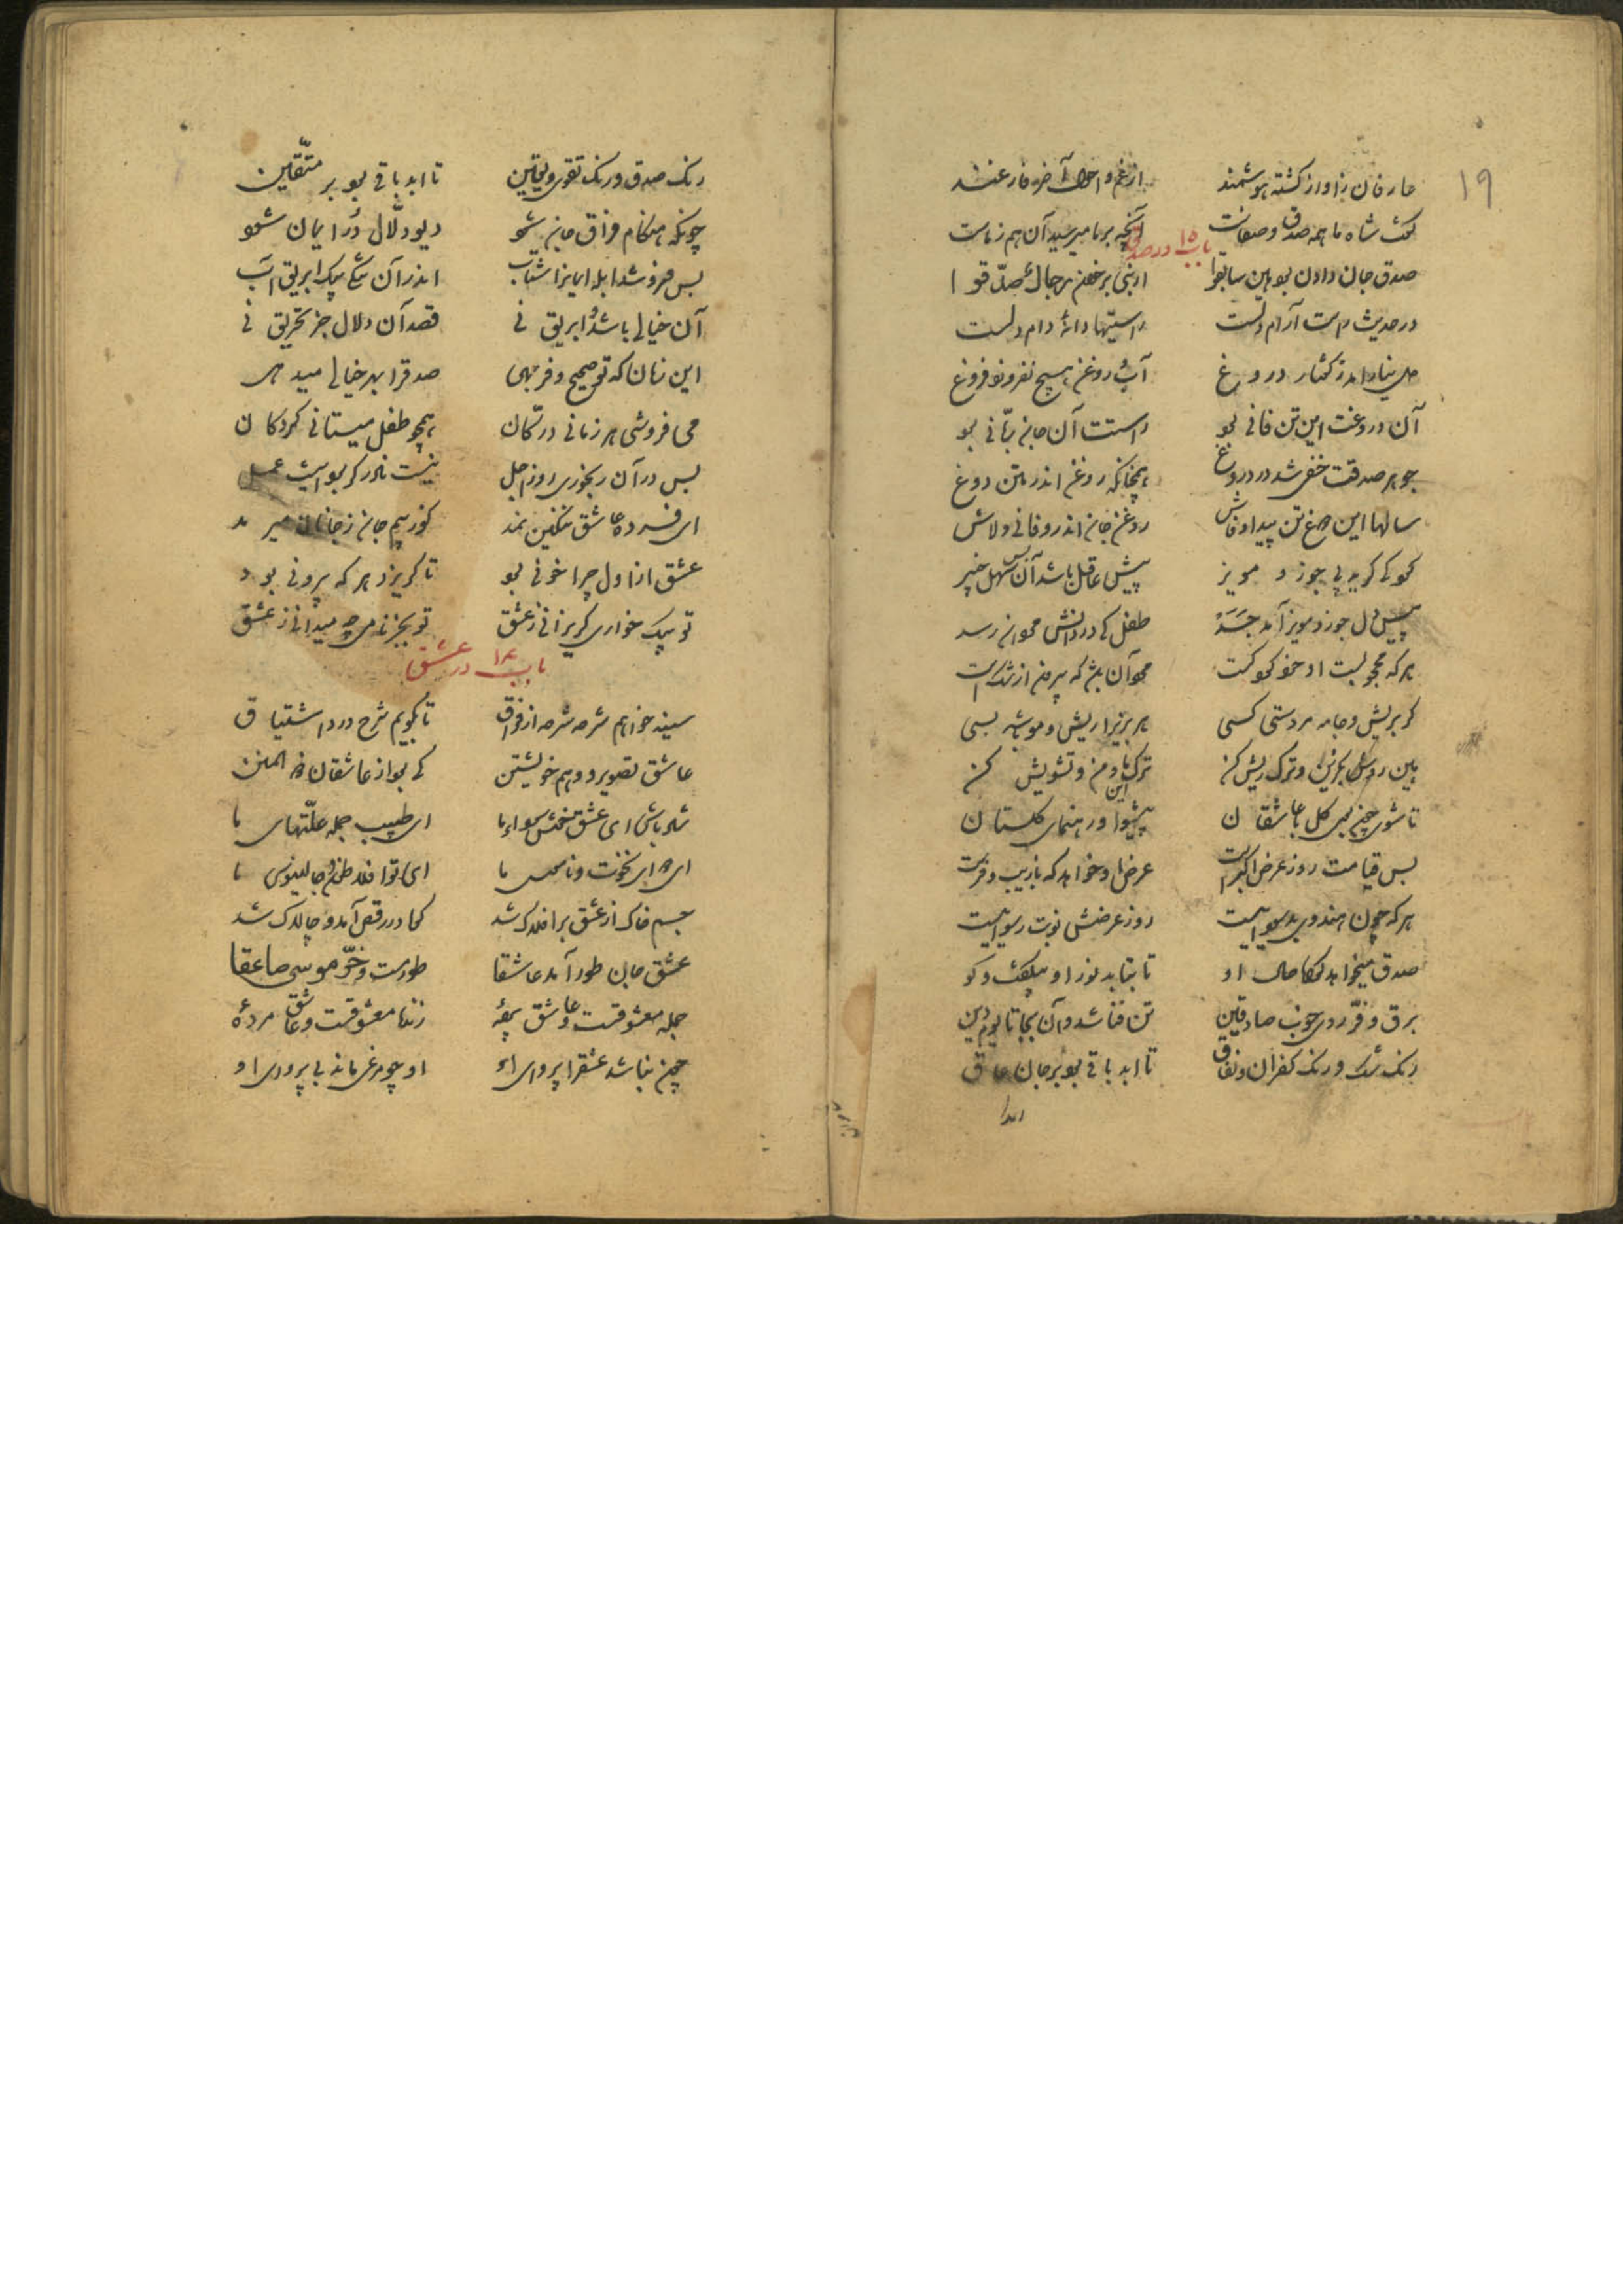 ۱۹
عارفان زاوراز گشته هوشمند از غم و احوال آخر فارغند
گفت شاه ما همه صدق و صفاست آنچه بر ما میرسد آن هم ز ماست
باب ۱۵ در صدق
صدق جان دادن بود هین سابقوا از نبی برخوان رجالٌ صدّقوا
در حدیث راست آرام دلست راستیها دانهٔ دام دلست
دل نیارامد ز گفتار دروغ آب و روغن هیچ نفروزد فروغ
آن دروغت این تن فانی بود راستت آن جان ربّانی بود
جوهر صدقت خفی شد در دروغ همچنانکه روغن اندر متن دوغ
سالها این دوغ تن پیدا و فاش روغن جان اندرو فانی و لاش
کودکی گرید پی جوز و مویز پیش عاقل باشد آن بس سهل چیز
پیش دل جوز و مویز آمد جَسَدْ طفل کی در دانش مردان رسد
هر که محجوبست او خود کودکست مرد آن باشد که بیرون از شکست
گر بریش و خایه مردستی کسی هر بزیرا ریش و مو باشد بسی
هین روش بگزین و ترک ریش کن ترک این ما و من و تشویش کن
تا شوی چون بوی گل با عاشقان پیشوا و رهنمای گلستان
پس قیامت روز عرض اکبرست عرض او خواهد که با زیب و فرست
هر که چون هندوی بد سوداییست روز عرضش نوبت رسواییست
صدق میخواهد گواه حال او تا بتابد نور او بی گفت و گو
برق و فرّ روی خوب صادقین تن فنا شد وان بجا تا یوم دین
رنگ شک و رنگ کفران و نفاق تا ابد باقی بود بر جان عاق
رنگ صدق و رنگ تقوی و یقین تا ابد باقی بود بر متّقین
چونکه هنگام فراق جان شود دیو دلّال دُر ایمان شود
پس فروشد ابله ایمانرا شتاب اندر آن تنگی بیک ابریق آب
آن خیالی باشد و ابریق نی قصد آن دلال جز تخریق نی
این زمان که تو صحیح و فربهی صدقرا بهر خیالی میدهی
می فروشی هر زمانی در کان همچو طفل میستانی گردکان
پس در آن رنجوری روز اجل نیست نادر گر بود اینت عمل
ای فسرده عاشق ننگین نمد کو ز بیم جان ز جانان میرمد
عشق از اول چرا خونی بود تا گریزد هر که بیرونی بود
تو بیک خواری گریزانی ز عشق تو بجز نامی چه میدانی ز عشق
باب ۱۶ در عشق
سینه خواهم شرحه شرحه از فراق تا بگویم شرح درد اشتیاق
عاشق تصویر و وهم خویشتن کی بود از عاشقان ذو المنن
شاد باش ای عشق خوش سودای ما ای طبیب جمله علّتهای ما
ای دوای نخوت و ناموس ما ای تو افلاطون و جالینوس ما
جسم خاک از عشق بر افلاک شد کوه در رقص آمد و چالاک شد
عشق جان طور آمد عاشقا طور مست و خرّ موسی صاعقا
جمله معشوقست و عاشق پردهٔ زنده معشوقست و عاشق مردهٔ
چون نباشد عشقرا پروای او او چو مرغی ماند بی پروای او